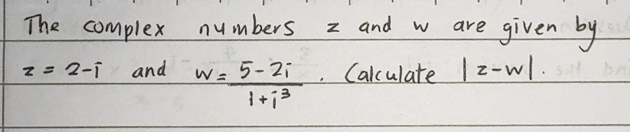 The complex numbers z and w are given by
z = 2-i and w = \frac{5-2i}{1+i^3}. Calculate |z-w|.